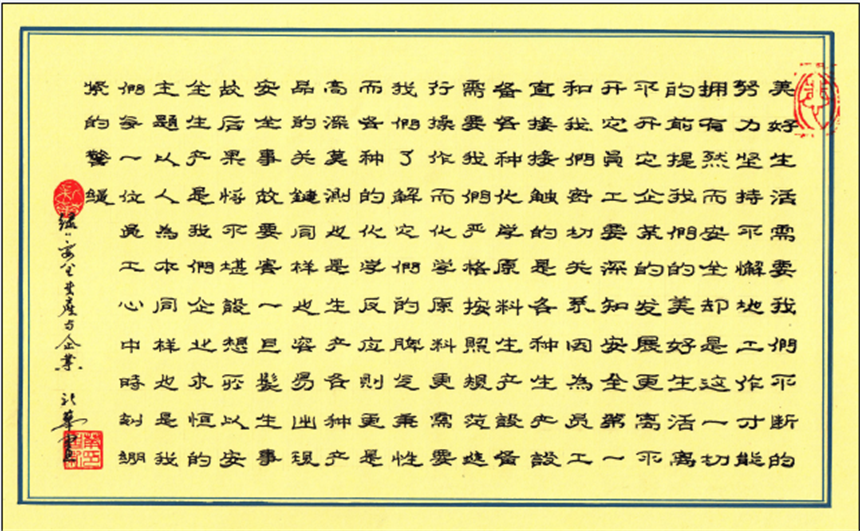 美好生活需要我們不断的
努力坚持不懈地工作才能
拥有然而安全却是这一切
的前提我們的美好生活离
不开它企業的发展更离不
开它員工要深知安全第一
和我們密切关系因為員工
直接接触的是各种生产設
备各种化学原料生产設备
需要我們严格按照規范進
行操作而化学原料更需要
我們了解它們的脾气秉性
而各种的化学反应則更是
高深莫測也是生产各种产
品的关鍵同样也容易出現
安全事故要害一旦發生事
故后果将不堪設想所以安
全生产是我們企业永恒的
主題以人為本同样也是我
們每一位員工心中時刻綳
紧的警
安全生産与企業 華書